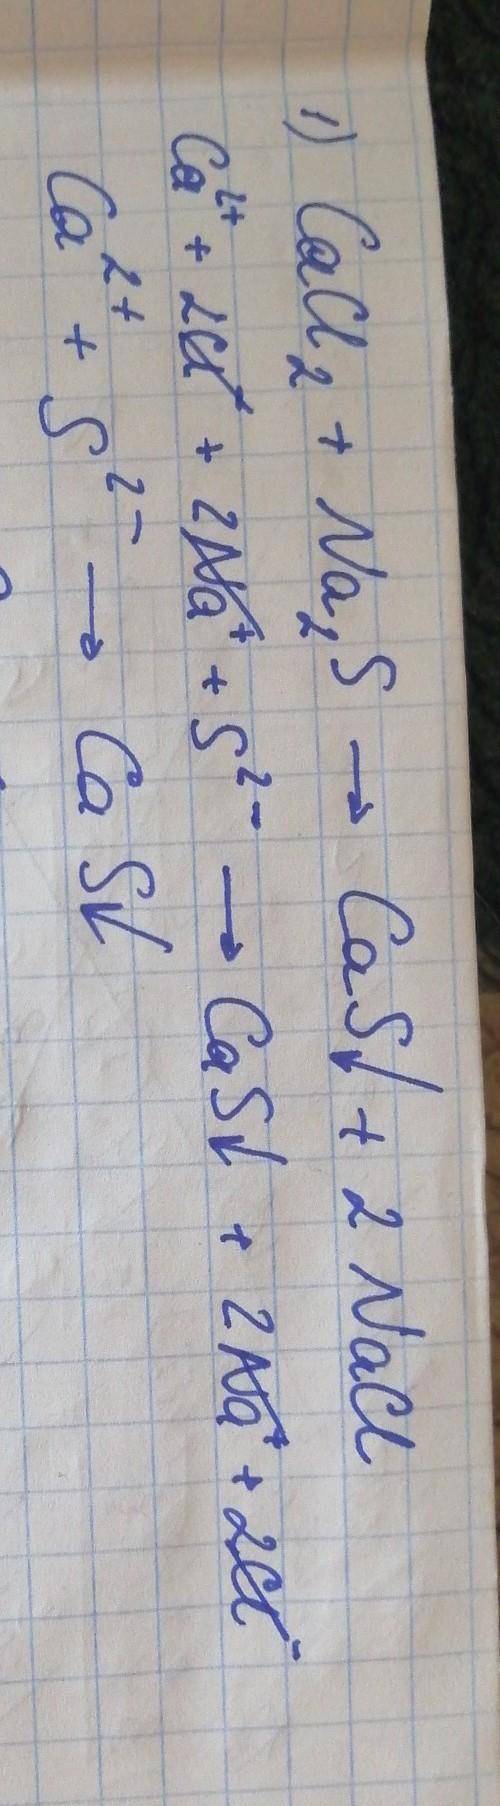 1) CaCl₂ + Na₂S → CaS↓ + 2NaCl
Ca²⁺ + 2Cl⁻ + 2Na⁺ + S²⁻ → CaS↓ + 2Na⁺ + 2Cl⁻
Ca²⁺ + S²⁻ → CaS↓